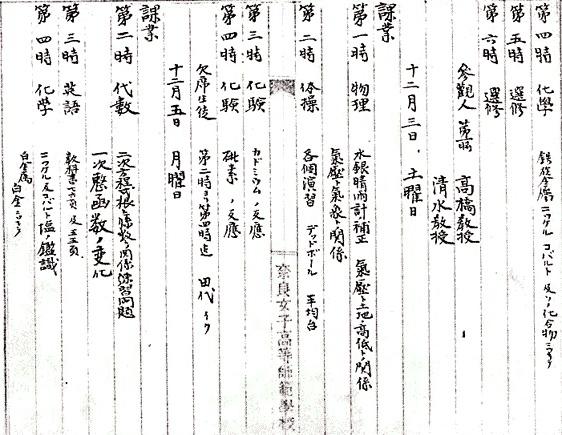 第四時 化學 鉄族金属ニッケル コバルト 及ソノ化合物
第五時 選修
第六時 選修
参觀人 高橋教授
清水教授
十二月三日、土曜日
課業
第一時 物理 水銀晴雨計補正 氣壓ト土地ノ高低トノ関係
氣壓ト氣象トノ関係
第二時 体操 各個演習 デッドボール 平均台
奈良女子高等師範學校
第三時 化験 カドミウムノ反應
第四時 化験 砒素ノ反應
欠席生徒 第二時ヨリ第四時迄 田代イク
十二月五日 月曜日
課業
第二時 代数 二次方程式ノ根ト係数ノ関係 練習問題
一次整函数ノ変化
第三時 英語 教科書
第四時 化学 ニッケル及コバルト塩ノ鑑識
白金属 白金